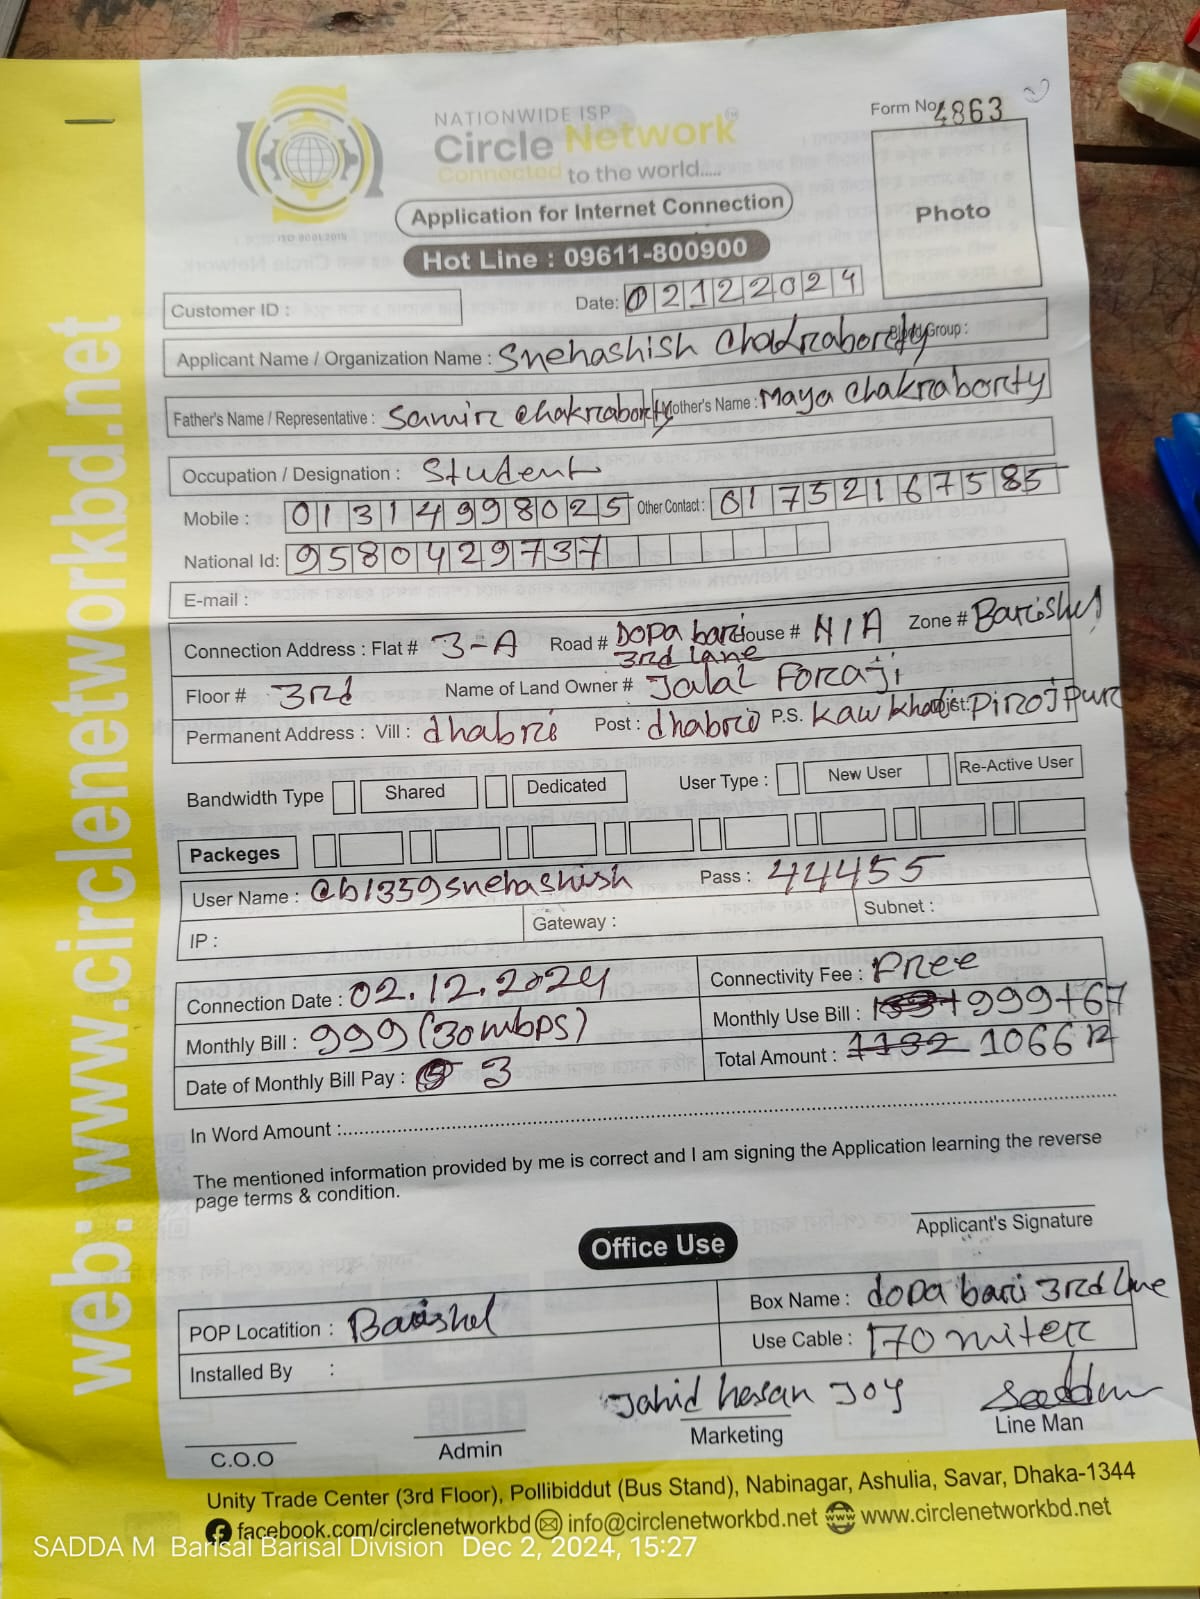 NATIONWIDE ISP
Circle Network
Connected to the world.....
ISO 9001:2015
Form No. 4863
Photo
Application for Internet Connection
Hot Line : 09611-800900
Customer ID :
Date: 02122024
Applicant Name / Organization Name : Snehashish Chakraborty Blood Group :
Father's Name / Representative : Samir Chakraborty Mother's Name : Maya Chakraborty
Occupation / Designation : Student
Mobile : 01314998025 Other Contact : 01752167585
National Id: 9580429737
E-mail :
Connection Address : Flat # 3-A Road # Dopa bari 3rd lane House # N/A Zone # Barishal
Floor # 3rd Name of Land Owner # Jalal Foraji
Permanent Address : Vill : dhabri Post : dhabri P.S. Kawkhali Dist: Pirojpur
Bandwidth Type Shared Dedicated User Type : New User Re-Active User
Packeges
User Name : @b1359snehashish Pass : 44455
IP : Gateway : Subnet :
Connection Date : 02.12.2024 Connectivity Fee : Free
Monthly Bill : 999 (30mbps) Monthly Use Bill : 999+67
Date of Monthly Bill Pay : 3 Total Amount : 1132 1066
In Word Amount :
The mentioned information provided by me is correct and I am signing the Application learning the reverse
page terms & condition.
Applicant's Signature
Office Use
POP Locatition : Barishal Box Name : dopa bari 3rd lane
Installed By : Use Cable : 170 miter
Jahid hasan Joy Saddam
C.O.O Admin Marketing Line Man
Unity Trade Center (3rd Floor), Pollibiddut (Bus Stand), Nabinagar, Ashulia, Savar, Dhaka-1344
facebook.com/circlenetworkbd info@circlenetworkbd.net www.circlenetworkbd.net
web: www.circlenetworkbd.net
SADDA M Barisal Barisal Division Dec 2, 2024, 15:27